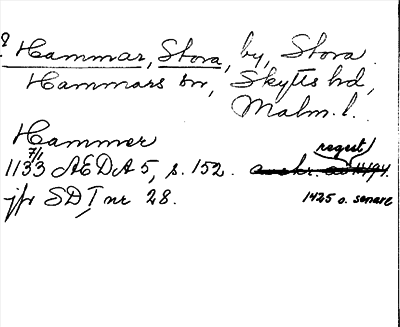 ? Hammar, Stora, by, Stora
Hammars sn, Skytts hd,
Malm. l.
Hammer
regest
1133 7/1 AEDA 5, s. 152. avskr.
jfr SD I nr 28.
1425 o. senare